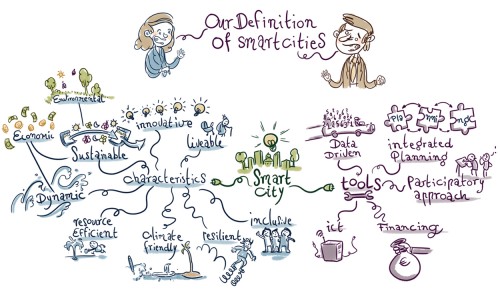 Our Definition
of smartcities
Environmental
Economic
Sustainable
innovative
liveable
Dynamic
characteristics
resource
Efficient
Climate
friendly
resilient
inclusive
Smart
City
Data
Driven
integrated
Planning
tools
Participatory
approach
ict
Financing
€